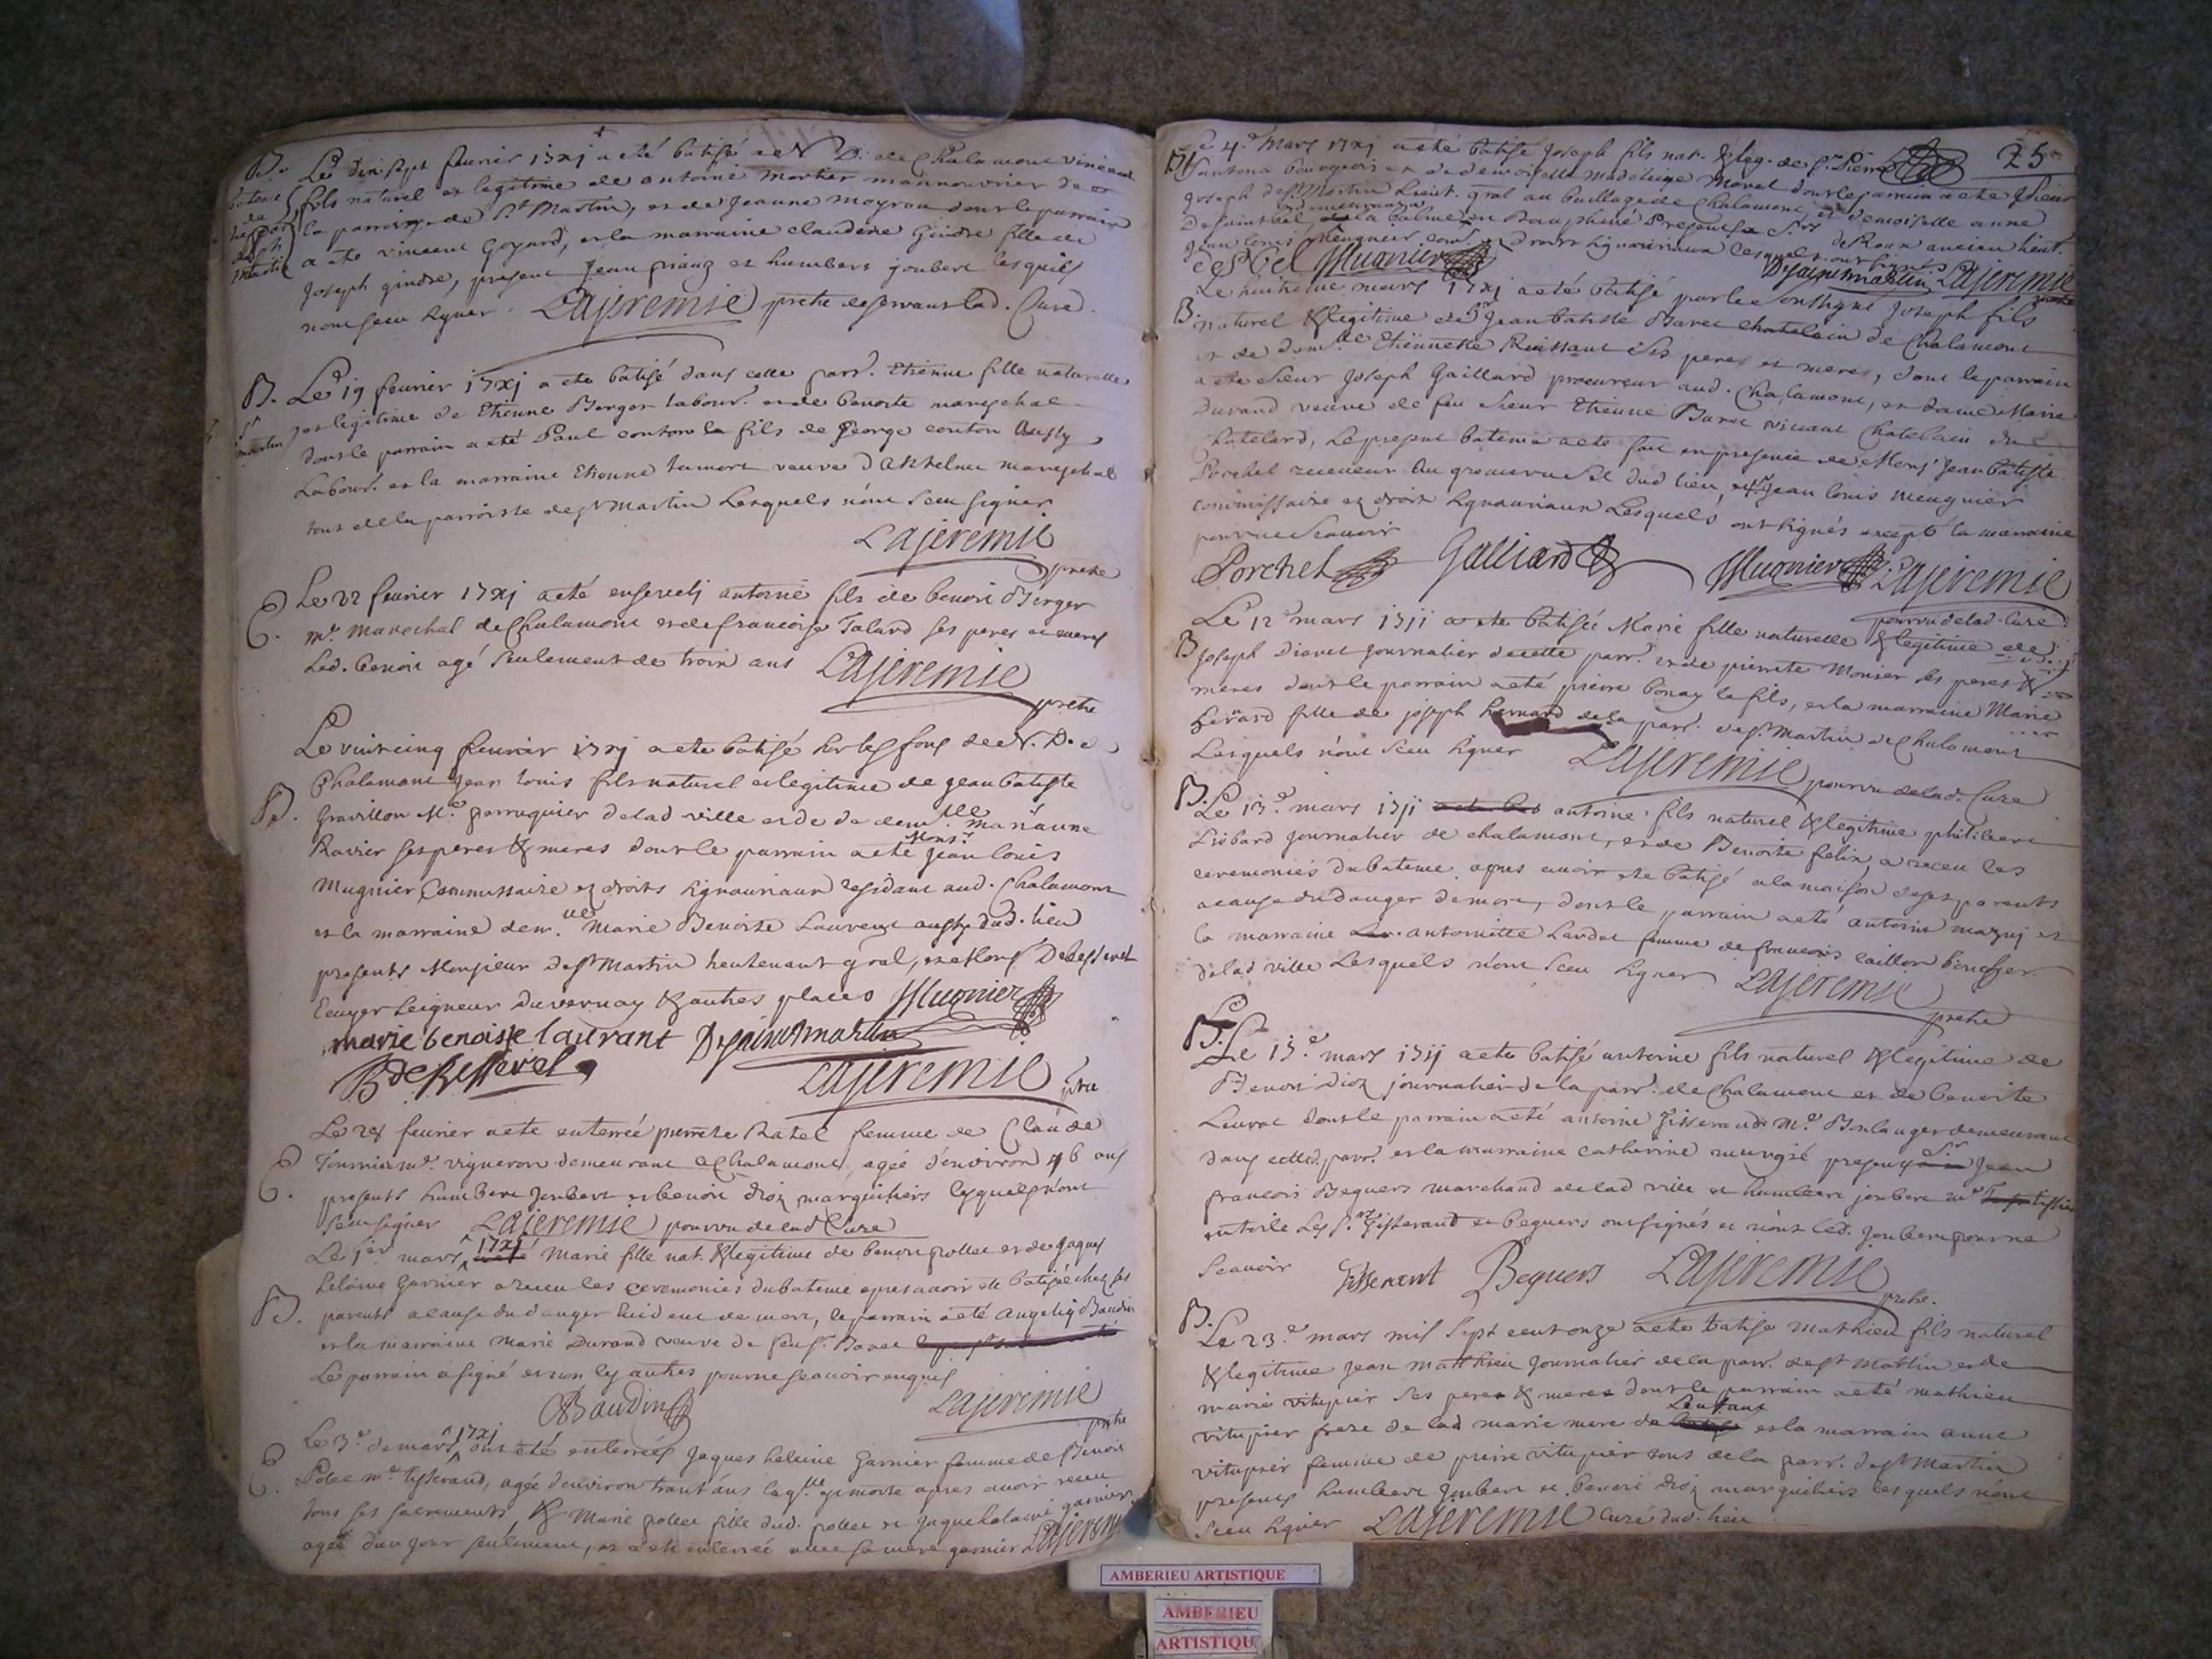 B. Le dix sept feurier 17xj a eté batisé a N. D. de Chalamont vincent
fils naturel et legitime de antoine Mortier mannouvrier de
la parroisse de St Martin, et de Jeanne Moyrou dont le parrain
a ete vincent Goyard, et la marraine claudine Gindre fille de
Joseph gindre, present Jean et humbert joubert lesquels
nont sceu signer. Lajeremie pretre deservant lad. Cure.
B. Le 19 feurier 17xj a ete batisé dans cette parr. Etienne fille naturelle
St martin
et legitime de Etienne Berger labour. et de benoite mareschal
dont le parrain a eté Paul conton le fils de George conton aussy
Labour. et la marraine Etienne lamort veuve d'Anthelme mareschal
tous de la parroisse de St Martin Lesquels n'ont sceu signer
Lajeremie
pretre
E. Le 22 feurier 17xj a eté enseveli antoine fils de benoit Berger
mr. Marechal de Chalamont et de francoise Talard ses peres et meres
Led. benoit agé seulement de trois ans Lajeremie
pretre
Le vintcinq feurier 17xj a ete batisé sur les fons de N. D. de
Chalamont Jean Louis fils naturel et legitime de Jean batiste
B. Gravillon Me. perruquier de lad ville et de demlle marianne
Ravier ses peres & meres dont le parrain a eté Monsr. Jean louis
Mugnier Commissaire ez droits signauriaux residant aud. Chalamont
et la marraine demlle Marie Benoite Laurent aussy dud. lieu
presents Monsieur de St Martin lieutenant gral, et Mons
Ecuyer seigneur du vernay & autres places Mugnier
marie benoiste laurant Desaintmartin
Lajeremie ptre
Le 28 feurier a ete enterrée pierrette Ratel femme de Claude
E. Tournier mr. vigneron demeurant a Chalamont, agée d'environ 46 ans
presents humbert Joubert et benoit droz marguilliers lesquels n'ont
sceu signer Lajeremie pourvu de lad Cure
Le 1er mars 17xj Marie fille nat. & legitime de benoit pollet et de Jaques
B. heleine Garnier a receu les ceremonies du bateme apres avoir ete batisée chez ses
parents a cause du danger evident de mort, le parrain a eté Baudin
et la marraine Marie Durand veuve de feu sr. Bavet
Le parrain a signé et non les autres pour ne scavoir enquis
Baudin Lajeremie
pretre
E. Le 3e. de mars 17xj ont eté enterrées Jaques heleine Garnier femme de Benoit
Polet me. tisserand, agée d'environ trant ans laqlle. et morte apres avoir receu
tous ses sacrements, & Marie pollet fille dud. pollet et Jaque helaine garnier,
agée d'un jour seulement, et a ete enterrée avec sa mere garnier Lajeremie
25
Le 4e. Mars 17xj a eté batisé Joseph fils nat. & leg. de sr. Pierre
bourgeois et de demoiselle Madeleine Morel dont le parrain a ete sieur
Joseph de St Martin Lieut. gral au baillage de Chalamont, et demoiselle anne
demeurant a la balme en Dauphiné Presents Srs
Jean louis Meugnier com. ez droits signauriaux lesquels ont signé
Mugnier Desaintmartin Lajeremie
B. Le huitieme mars 17xj a eté batisé par le soussigné Joseph fils
naturel & legitime de Sr Jean batiste Bavet chatelain de Chalamont
et de demlle Etiennette Ruissant ses peres et meres, dont le parrain
a ete sieur Joseph Gaillard procureur aud. Chalamont, et dame Marie
Durand veuve de feu sieur Etienne Bavet vivant Chatelain du
Chatelard, Le present bateme a ete fait en presence de Monsr Jean batiste
Porchet receveur au grenier a sel dud lieu, et sr Jean louis Meugnier
commissaire ez droits signauriaux Lesquels ont signés excepté la marraine
pour ne scavoir
Porchet Galliard Mugnier Lajeremie
pourvu de lad. Cure
Le 12e mars 1711 a ete batisée Marie fille naturelle & legitime de
B Joseph Dianet Journalier de cette parr. et de pierrette Monier ses peres &
meres dont le parrain a eté pierre bonay le fils, et la marraine Marie
fille de joseph de la parr. de St Martin de Chalamont
Lesquels n'ont sceu signer Lajeremie pourvu de lad. Cure
B. Le 13e. mars 1711 antoine fils naturel & legitime philibert
Liobard Journalier de chalamont, et de Benoite felix a receu les
ceremonies du bateme apres avoir ete batisé a la maison de ses parents
a cause du danger de mort, dont le parrain a eté antoine mazuj et
la marraine antoinette Lardet femme de francois caillon boucher
de lad ville Lesquels n'ont sceu signer Lajeremie
pretre
B. Le 15e. mars 1711 a ete batisé antoine fils naturel & legitime de
Benoit Droz journalier de la parr. de Chalamont et de benoite
Louvat dont le parrain a eté antoine Tisserand Me. Boulanger demeurant
dans cetted. parr. et la marraine catherine presents Sr Jean
francois Beguers marchand de lad ville et humbert joubert me tissier
en toile Les srs Tisserand et beguers ont signés et n'ont led. Joubert pour ne
scavoir Tisserant Beguers Lajeremie
pretre.
B. Le 23e. mars mil sept cent onze a ete batisé Mathieu fils naturel
& legitime Jean Matthieu Journalier de la parr. de St Martin et de
marie vitupier ses peres & meres dont le parrain a eté mathieu
vitupier frere de lad marie mere de Lenfant et la marrain anne
vitupier femme de pierre vitupier tous de la parr. de St Martin
presents humbert Joubert et benoit droz marguilliers lesquels n'ont
sceu signer Lajeremie Curé dud. lieu
AMBERIEU ARTISTIQUE
AMBERIEU
ARTISTIQU